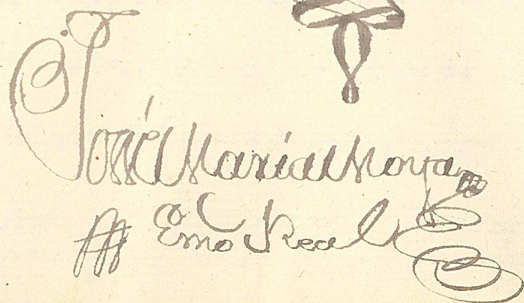 José María Moya
Esno Real